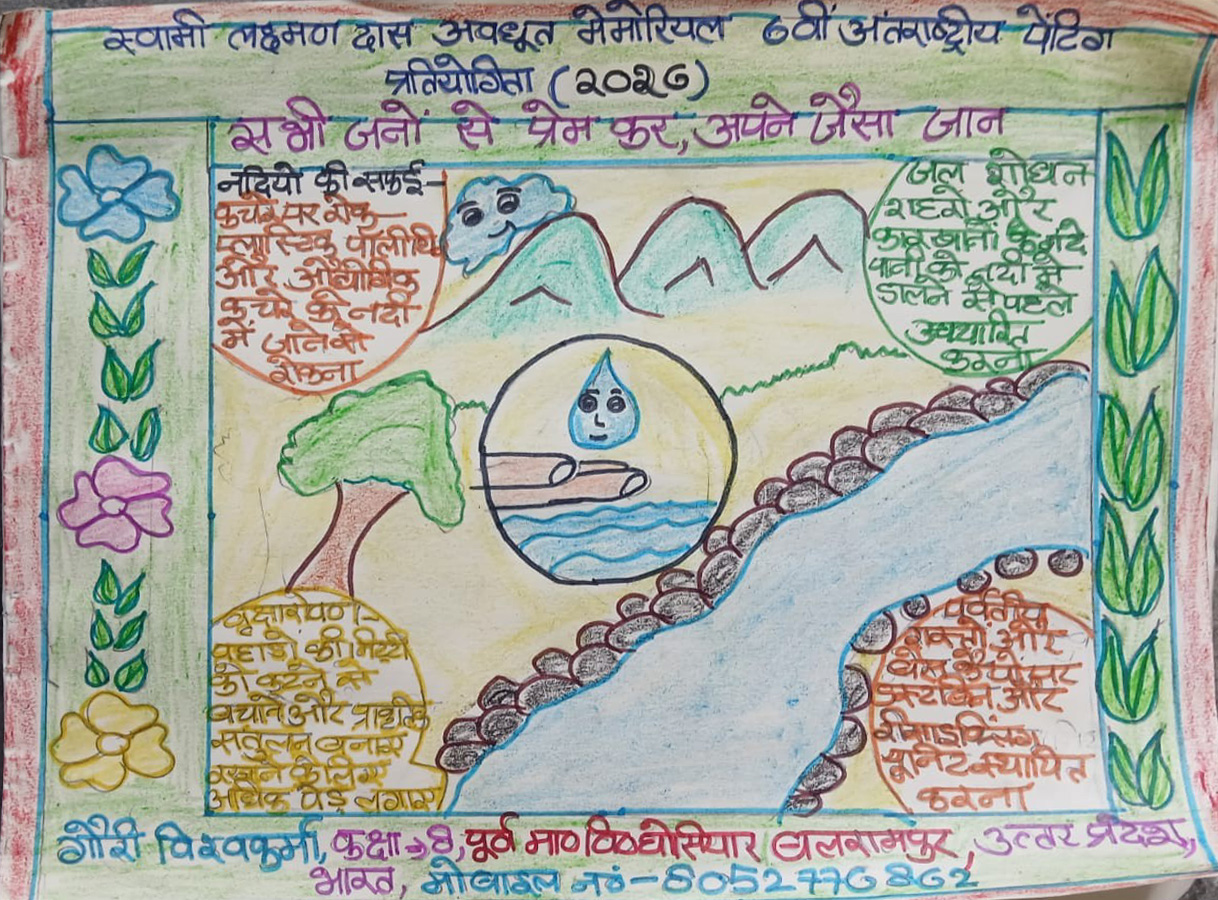 स्वामी लक्ष्मण दास अवधूत मेमोरियल 6वीं अंतराष्ट्रीय पेंटिंग
प्रतियोगिता (२०२6)
सभी जनों से प्रेम कर, अपने जैसा जान
नदियों की सफाई-
कचरे पर रोक-
प्लास्टिक पॉलीथि
और औद्योगिक
कचरे को नदी
में जाने से
रोकना
जल शोधन
शहरों और
कारखानों के
पानी को नदी में
डालने से पहले
करना
वृक्षारोपण-
पहाडों की मिट्टी
को कटने से
बचाने और
संतुलन बनाए
रखने के लिए
अधिक पेड़ लगाए
पर्वतीय
रास्तों और
और
रीसाइक्लिंग
यूनिट स्थापित
करना
गौरी विश्वकर्मा, कक्षा→8, पूर्व मा० वि० घोसियार बलरामपुर, उत्तर प्रदेश,
भारत, मोबाइल नं-8052776862